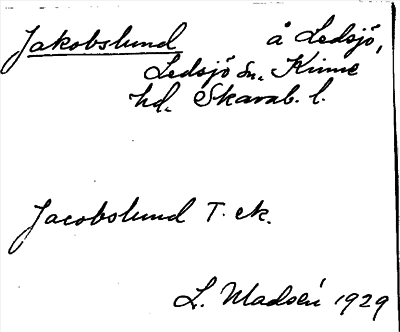 Jakobslund å Ledsjö,
Ledsjö sn. Kinne
hd. Skarab. l.
Jacobslund T. ek.
L. Madsén 1929